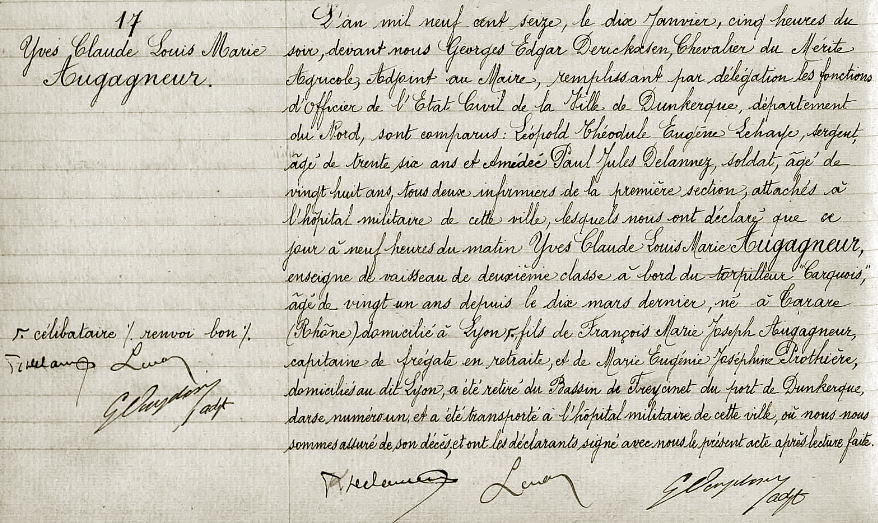 17
Yves Claude Louis Marie
Augagneur.
L'an mil neuf cent seize, le dix Janvier, cinq heures du
soir, devant nous Georges Edgar Deruckasen, Chevalier du Mérite
Agricole, Adjoint au Maire, remplissant par délégation les fonctions
d'Officier de l'Etat Civil de la Ville de Dunkerque, département
du Nord, sont comparus: Léopold Théodule Eugène Lehaye, sergent,
âgé de trente six ans et Amédée Paul Jules Delannez, soldat, âgé de
vingt huit ans, tous deux infirmiers de la première section, attachés à
l'hôpital militaire de cette ville, lesquels nous ont déclaré que ce
jour à neuf heures du matin Yves Claude Louis Marie Augagneur,
enseigne de vaisseau de deuxième classe à bord du torpilleur "Carquois",
âgé de vingt un ans depuis le dix mars dernier, né à Tarare
(Rhône) domicilié à Lyon, fils de François Marie Joseph Augagneur,
capitaine de frégate en retraite, et de Marie Eugénie Joséphine Prothière,
domiciliés au dit Lyon, a été retiré du Bassin de Freycinet du port de Dunkerque,
darse numéro un, et a été transporté à l'hôpital militaire de cette ville, où nous nous
sommes assuré de son décès, et ont les déclarants signé avec nous le présent acte après lecture faite.
célibataire /. renvoi bon /.
adjt
adjt